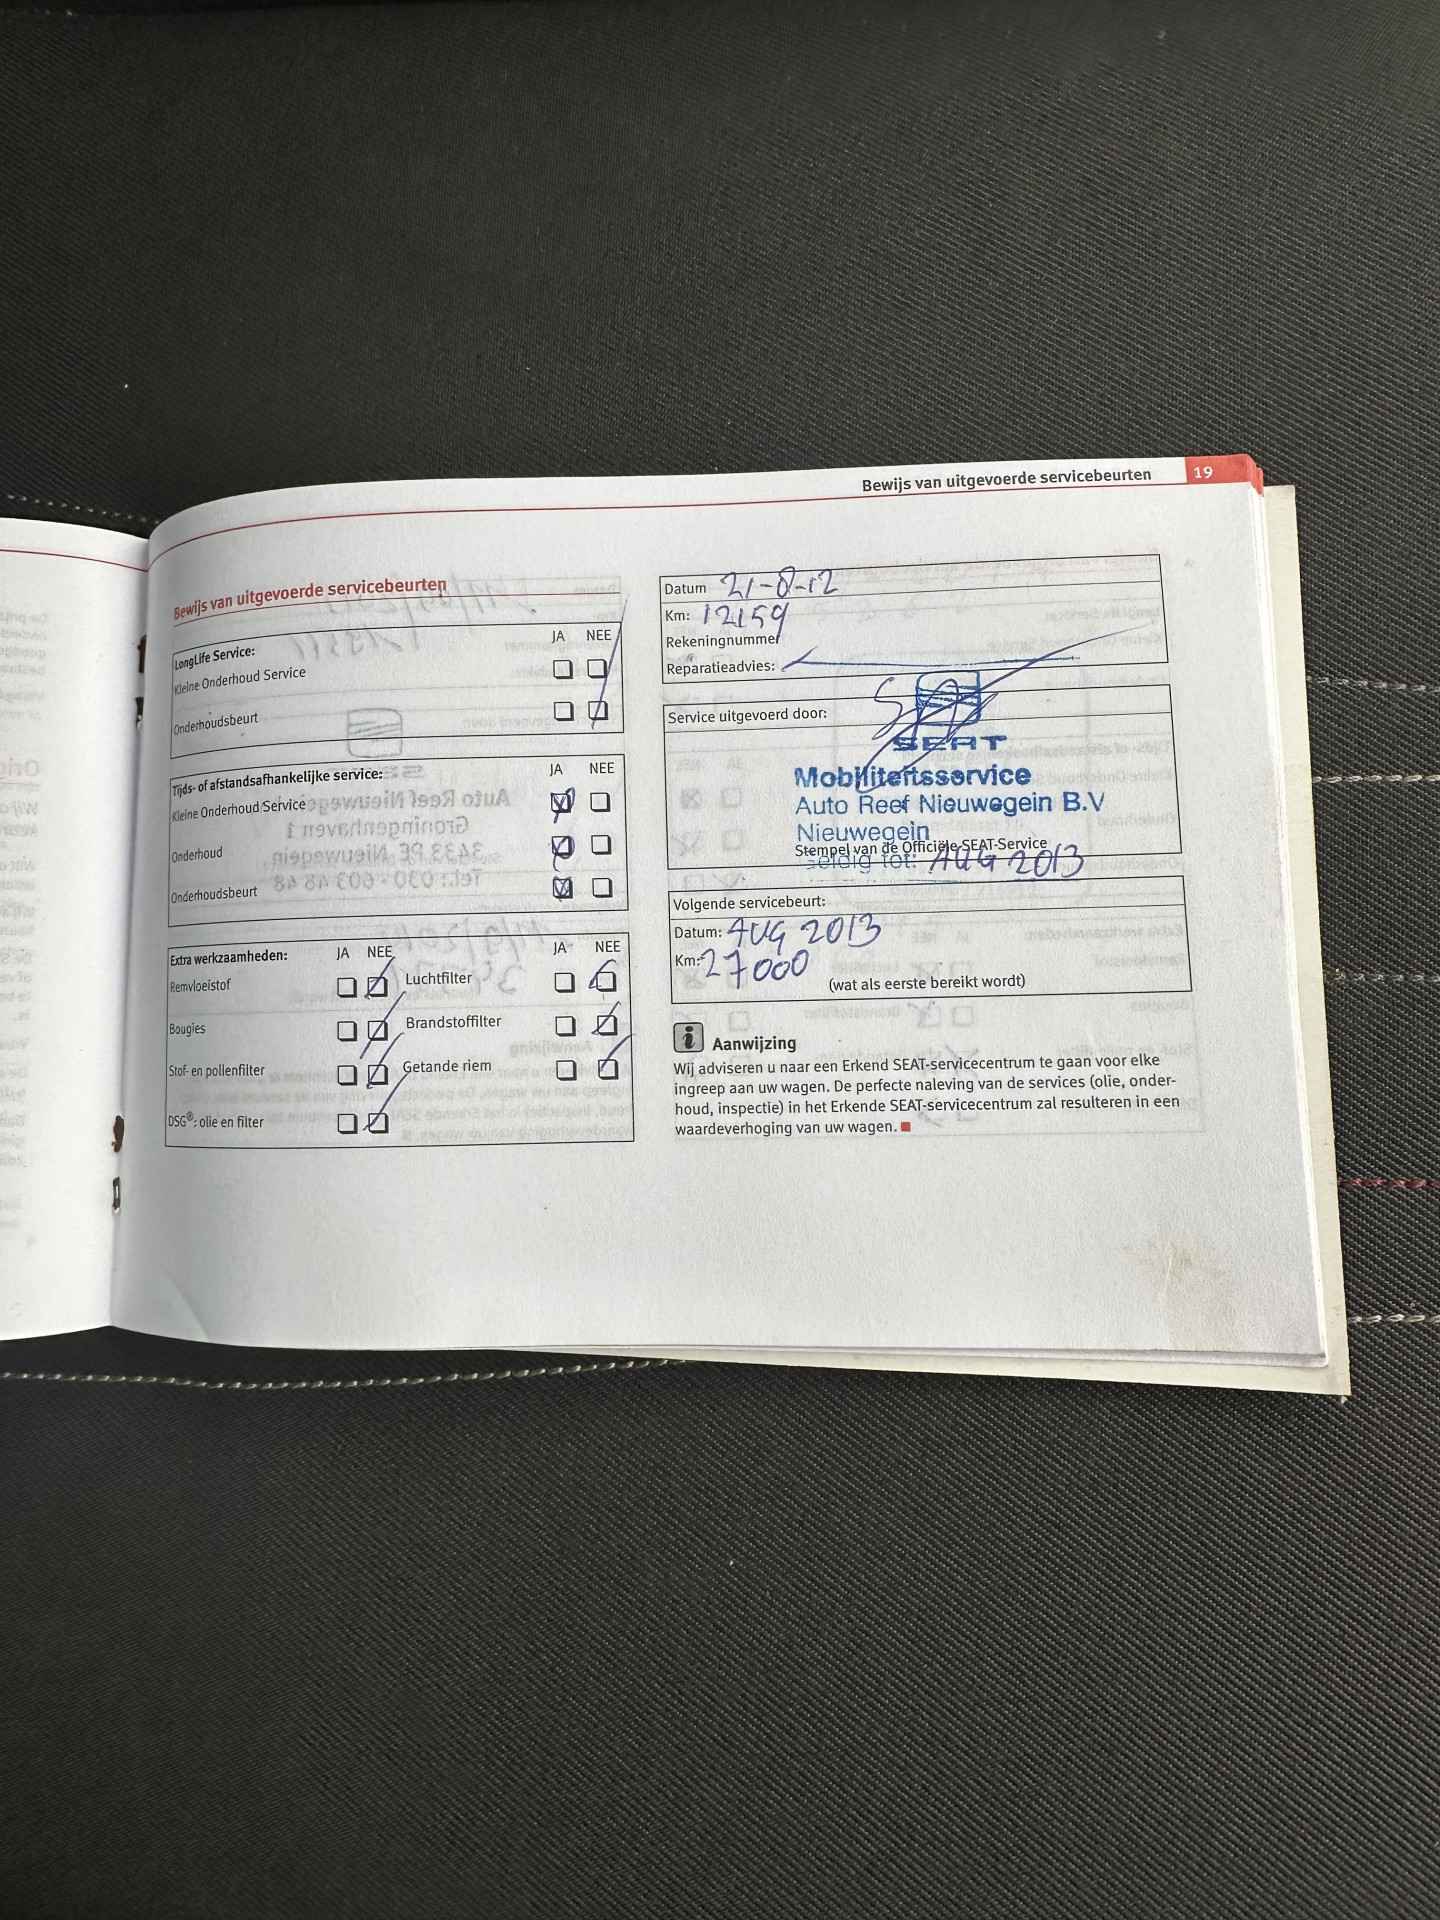 Bewijs van uitgevoerde servicebeurten 19
Bewijs van uitgevoerde servicebeurten
LongLife Service: JA NEE
Kleine Onderhoud Service
Onderhoudsbeurt
Tijds- of afstandsafhankelijke service: JA NEE
Kleine Onderhoud Service
Onderhoud
Onderhoudsbeurt
Extra werkzaamheden: JA NEE JA NEE
Remvloeistof Luchtfilter
Bougies Brandstoffilter
Stof- en pollenfilter Getande riem
DSG®: olie en filter
Datum 21-8-12
Km: 12159
Rekeningnummer
Reparatieadvies:
Service uitgevoerd door:
SEAT
Mobiliteitsservice
Auto Reef Nieuwegein B.V
Nieuwegein
Stempel van de Officiële SEAT-Service
Geldig tot: AUG 2013
Volgende servicebeurt:
Datum: AUG 2013
Km: 27000
(wat als eerste bereikt wordt)
i Aanwijzing
Wij adviseren u naar een Erkend SEAT-servicecentrum te gaan voor elke
ingreep aan uw wagen. De perfecte naleving van de services (olie, onder-
houd, inspectie) in het Erkende SEAT-servicecentrum zal resulteren in een
waardeverhoging van uw wagen.